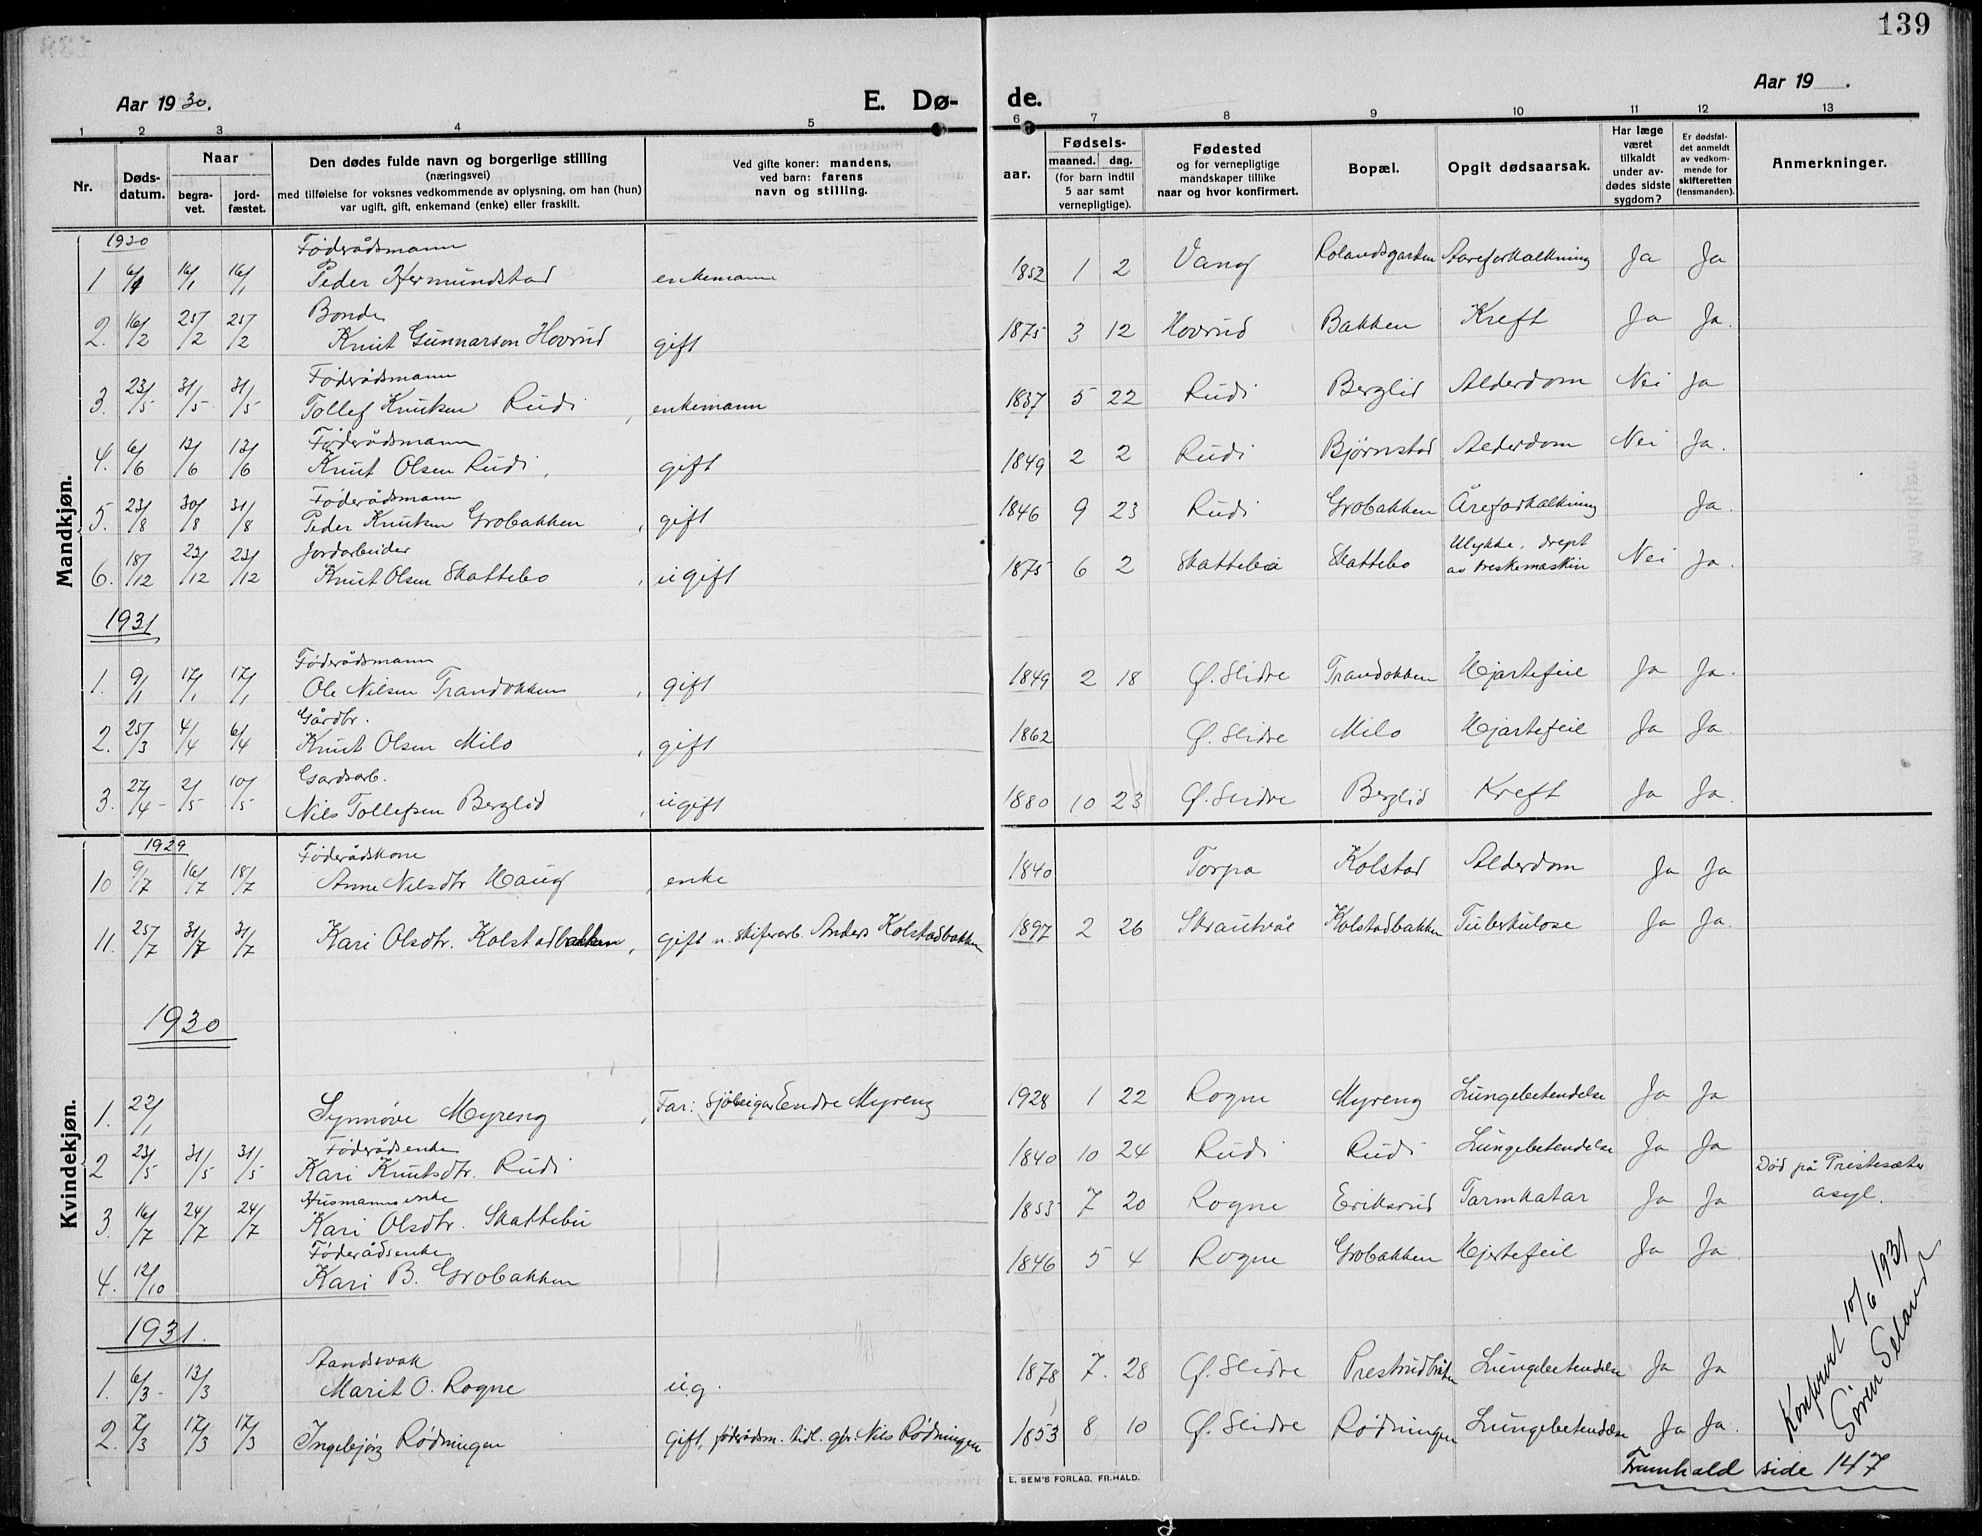 139
Aar 1930.
E. Dø-
de.
Aar 19 .
1 2 3 4 5 6 7 8 9 10 11 12 13
Nr.
Døds-
datum.
Naar
begra-
vet.
jord-
fæstet.
Den dødes fulde navn og borgerlige stilling
(næringsvei)
med tilføielse for voksnes vedkommende av oplysning, om han (hun)
var ugift, gift, enkemand (enke) eller fraskilt.
Ved gifte koner: mandens,
ved barn: farens
navn og stilling.
Fødsels-
aar.
maaned. dag.
(for barn indtil
5 aar samt
vernepligtige).
Fødested
og for vernepligtige
mandskaper tillike
naar og hvor konfirmert.
Bopæl.
Opgit dødsaarsak.
Har læge
været
tilkaldt
under av-
dødes sidste
sygdom?
Er dødsfal-
det anmeldt
av vedkom-
mende for
skifteretten
(lensmanden).
Anmerkninger.
Mandkjøn.
1930
Føderådsmann
1 6/1 16/1 16/1 Peder Hermundstad enkemann 1852 1 2 Vang Rolandsgarden Aareforkalkning Ja Ja
Bonde
2. 16/2 25/2 25/2 Knut Gunnarson Hovrud gift 1875 3 12 Hovrud Bakken Kreft Ja Ja.
Føderådsmann
3. 23/5 31/5 31/5 Tollef Knutsen Rudi, enkemann 1837 5 22 Rudi Berglid Alderdom Nei Ja
Føderådsmann
4. 6/6 13/6 13/6 Knut Olsen Rudi, gift 1849 2 2 Rudi Bjørnstad Alderdom Nei Ja.
Føderådsmann
5. 23/8 30/8 31/8 Peder Knutsen Grobakken, gift 1846 9 23 Rudi Grobakken Åreforkalkning Ja.
Jordarbeider
6. 18/12 23/12 23/12 Knut Olsen Skattebo, ugift 1875 6 2 Skattebo Skattebo Ulykke, drept
av treskemaskin Nei Ja.
1931
Føderådsmann
1. 9/1 17/1 17/1 Ole Nilsen Trandokken, gift 1849 2 18 Ø. Slidre Trandokken Hjartefeil Ja Ja.
Gårdbr.
2. 25/3 4/4 6/4 Knut Olsen Milo, gift 1862 Ø. Slidre Milo Hjartefeil Ja Ja.
Gardsarb.
3. 27/4 - 2/5 10/5 Nils Tollefsen Berglid, ugift 1880 10 23 Ø. Slidre Berglid Kreft Ja Ja.
Kvindekjøn.
1929
Føderådskone
10 9/7 16/7 18/7 Anne Nilsdtr Haug, enke 1840 Torpa Kolstad Alderdom Ja Ja
11. 25/7 31/7 31/7 Kari Olsdtr. Kolstadbakken, gift m. skiferarb. Anders Kolstadbakken 1897 2 26 Skrautvål Kolstadbakken Tuberkulose Ja Ja.
1930
1. 22/1 Synnøve Myreng, Far: Endre Myreng 1928 1 22 Rogne Myreng Lungebetendelse Ja Ja
Føderådsenke
2 23/5 31/5 31/5 Kari Knutsdtr. Rudi 1840 10 24 Rudi Rudi Lungebetendelse Ja Ja
Husmannsenke
3. 16/7 24/7 24/7 Kari Olsdtr. Skattebu 1853 7 20 Rogne Eriksrud Tarmkatar Ja Ja Død på Pristesæter
asyl.
Føderådsenke
4. 12/10 Kari B. Grobakken 1846 5 4 Rogne Grobakken Hjertefeil Ja Ja.
1931.
Aandsvak
1. 6/3 - 13/3 Marit O. Rogne ug. 1878 7. 28 Ø. Slidre Lungebetendelse Ja Ja
2. 7/3 17/3 17/3 Ingebjørg Rødningen gift, føderådsm. tidl. gbr. Nils Rødningen 1853 8 10 Ø. Slidre Rødningen Lungebetendelse Ja Ja.
Konferert 10/6 1931
Søren Seland
E. SEM'S FORLAG, FR.HALD.
Framhald side 147